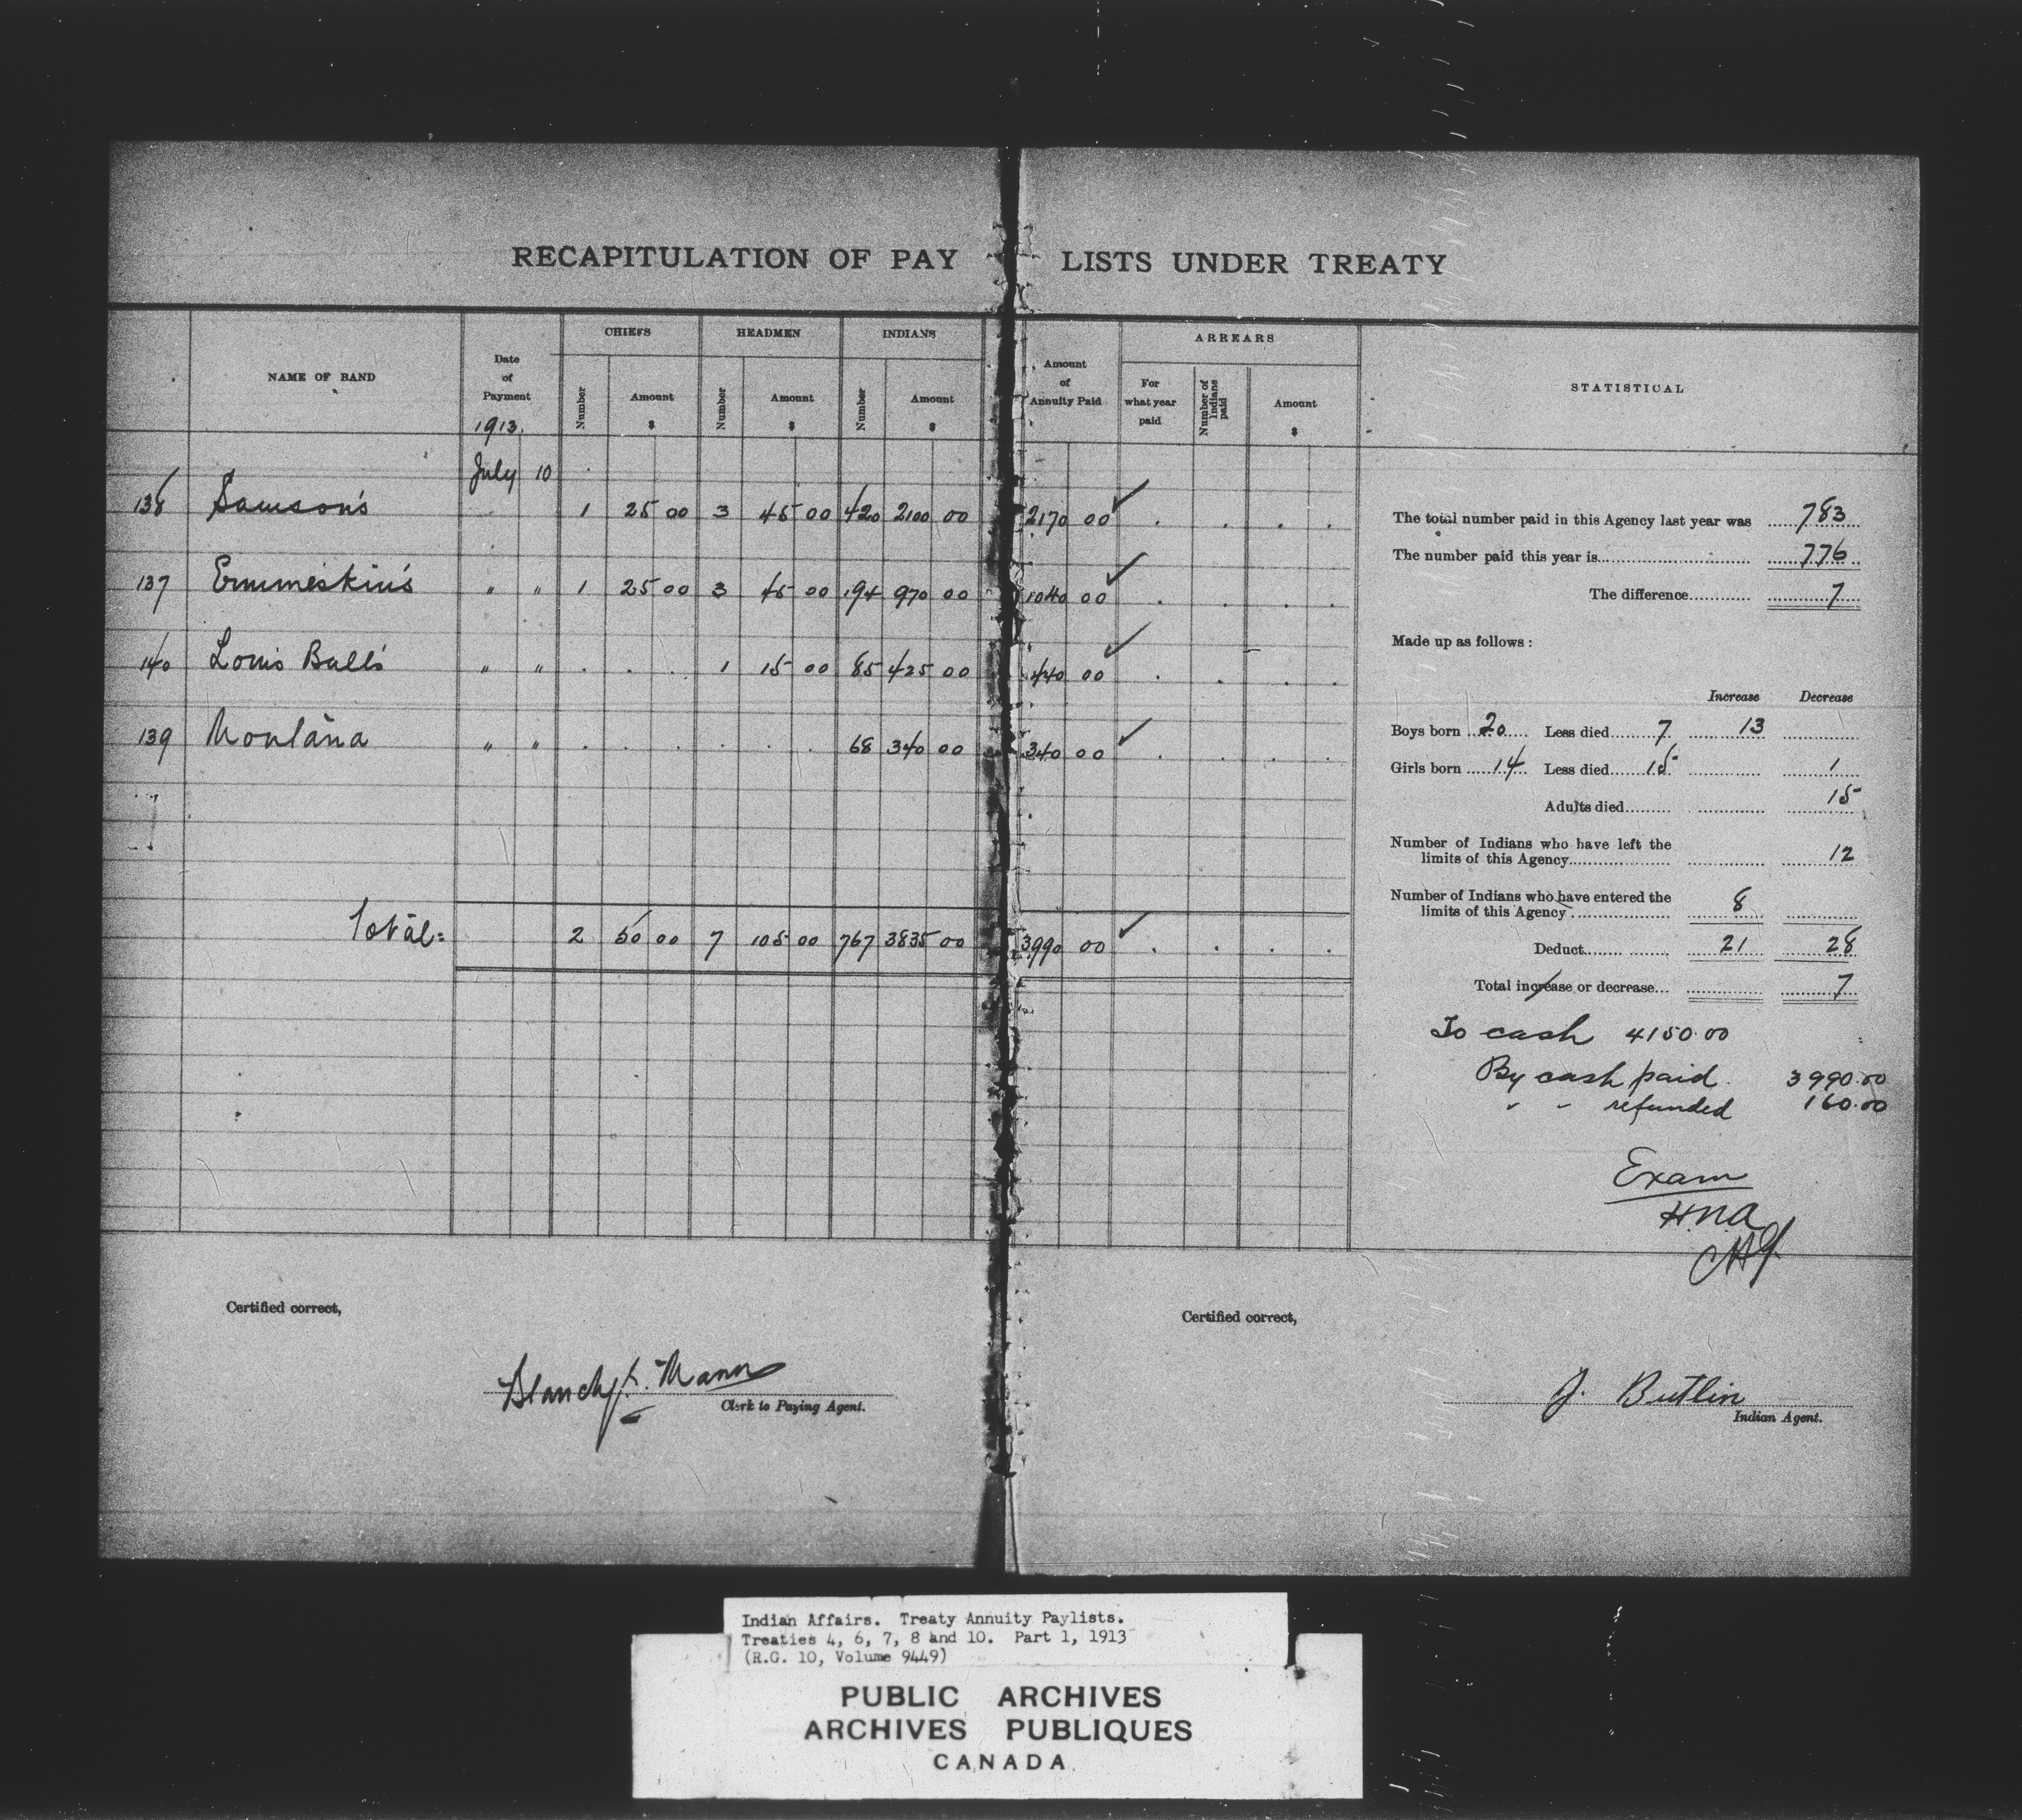 RECAPITULATION OF PAY LISTS UNDER TREATY
CHIEFS HEADMEN INDIANS ARREARS
NAME OF BAND Date of Payment Number Amount $ Number Amount $ Number Amount $ Amount of Annuity Paid For what year paid Number of Indians paid Amount $ STATISTICAL
1913.
July 10
138 Samson's 1 25 00 3 45 00 420 2100 00 2170 00 ✓
137 Ermineskin's " " 1 25 00 3 45 00 194 970 00 1040 00 ✓
140 Louis Bull's " " 1 15 00 85 425 00 440 00 ✓
139 Montana " " 68 340 00 340 00 ✓
Total: 2 50 00 7 105 00 767 3835 00 3990 00 ✓
The total number paid in this Agency last year was 783
The number paid this year is 776
The difference 7
Made up as follows:
Increase Decrease
Boys born 20 Less died 7 13
Girls born 14 Less died 15 1
Adults died 15
Number of Indians who have left the
limits of this Agency 12
Number of Indians who have entered the
limits of this Agency 8
Deduct 21 28
Total increase or decrease 7
To cash 4150.00
By cash paid. 3990.00
" " refunded 160.00
Exam
H.N.A.
Certified correct,
Mann
Clerk to Paying Agent.
Certified correct,
J. Butlin
Indian Agent.
Indian Affairs. Treaty Annuity Paylists.
Treaties 4, 6, 7, 8 and 10. Part 1, 1913
(R.G. 10, Volume 9449)
PUBLIC ARCHIVES
ARCHIVES PUBLIQUES
CANADA